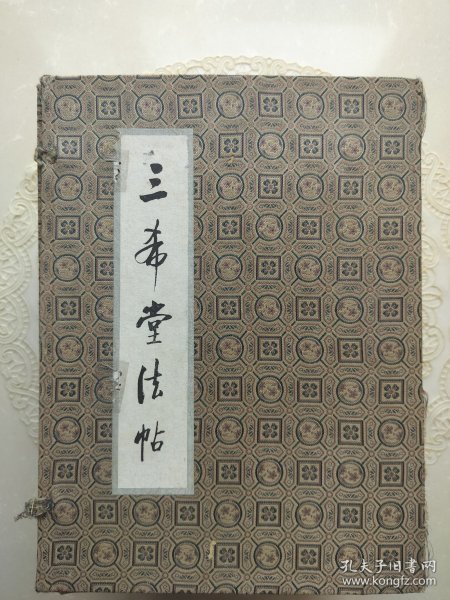 三希堂法帖
孔夫子旧书网
www.kongfz.com